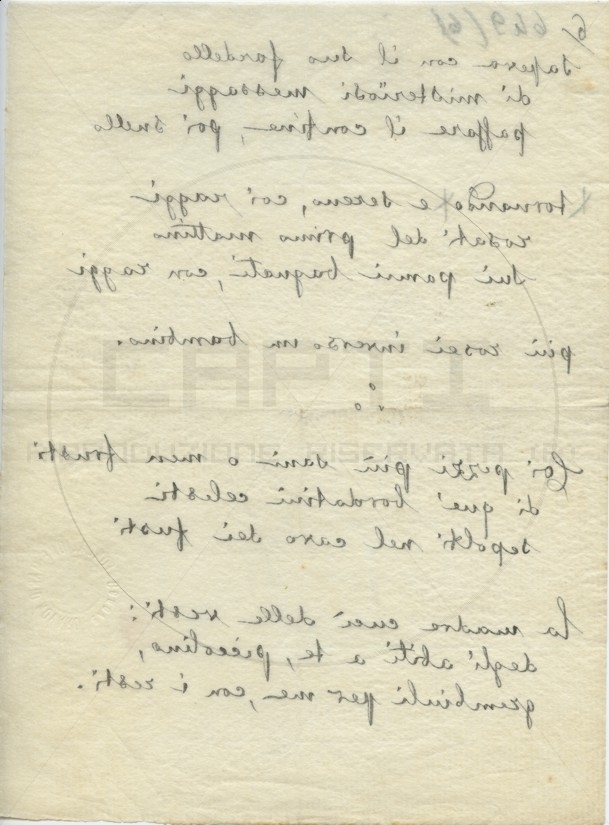 6/ 649/61
sapeva con il suo fardello
di misteriosi messaggi
passare il confine, poi snello
tornando e sereno, coi raggi
rosati del primo mattino
sui panni bagnati, con raggi
più rosei inverso un bambino.
Coi pezzi più sani o men frusti
di que' bordatini celesti
sepolti nel cavo dei fusti
la madre cucì delle vesti:
degli abiti a te, piccolino,
grembiuli per me, con i resti.
CAPTI
RIPRODUZIONE RISERVATA